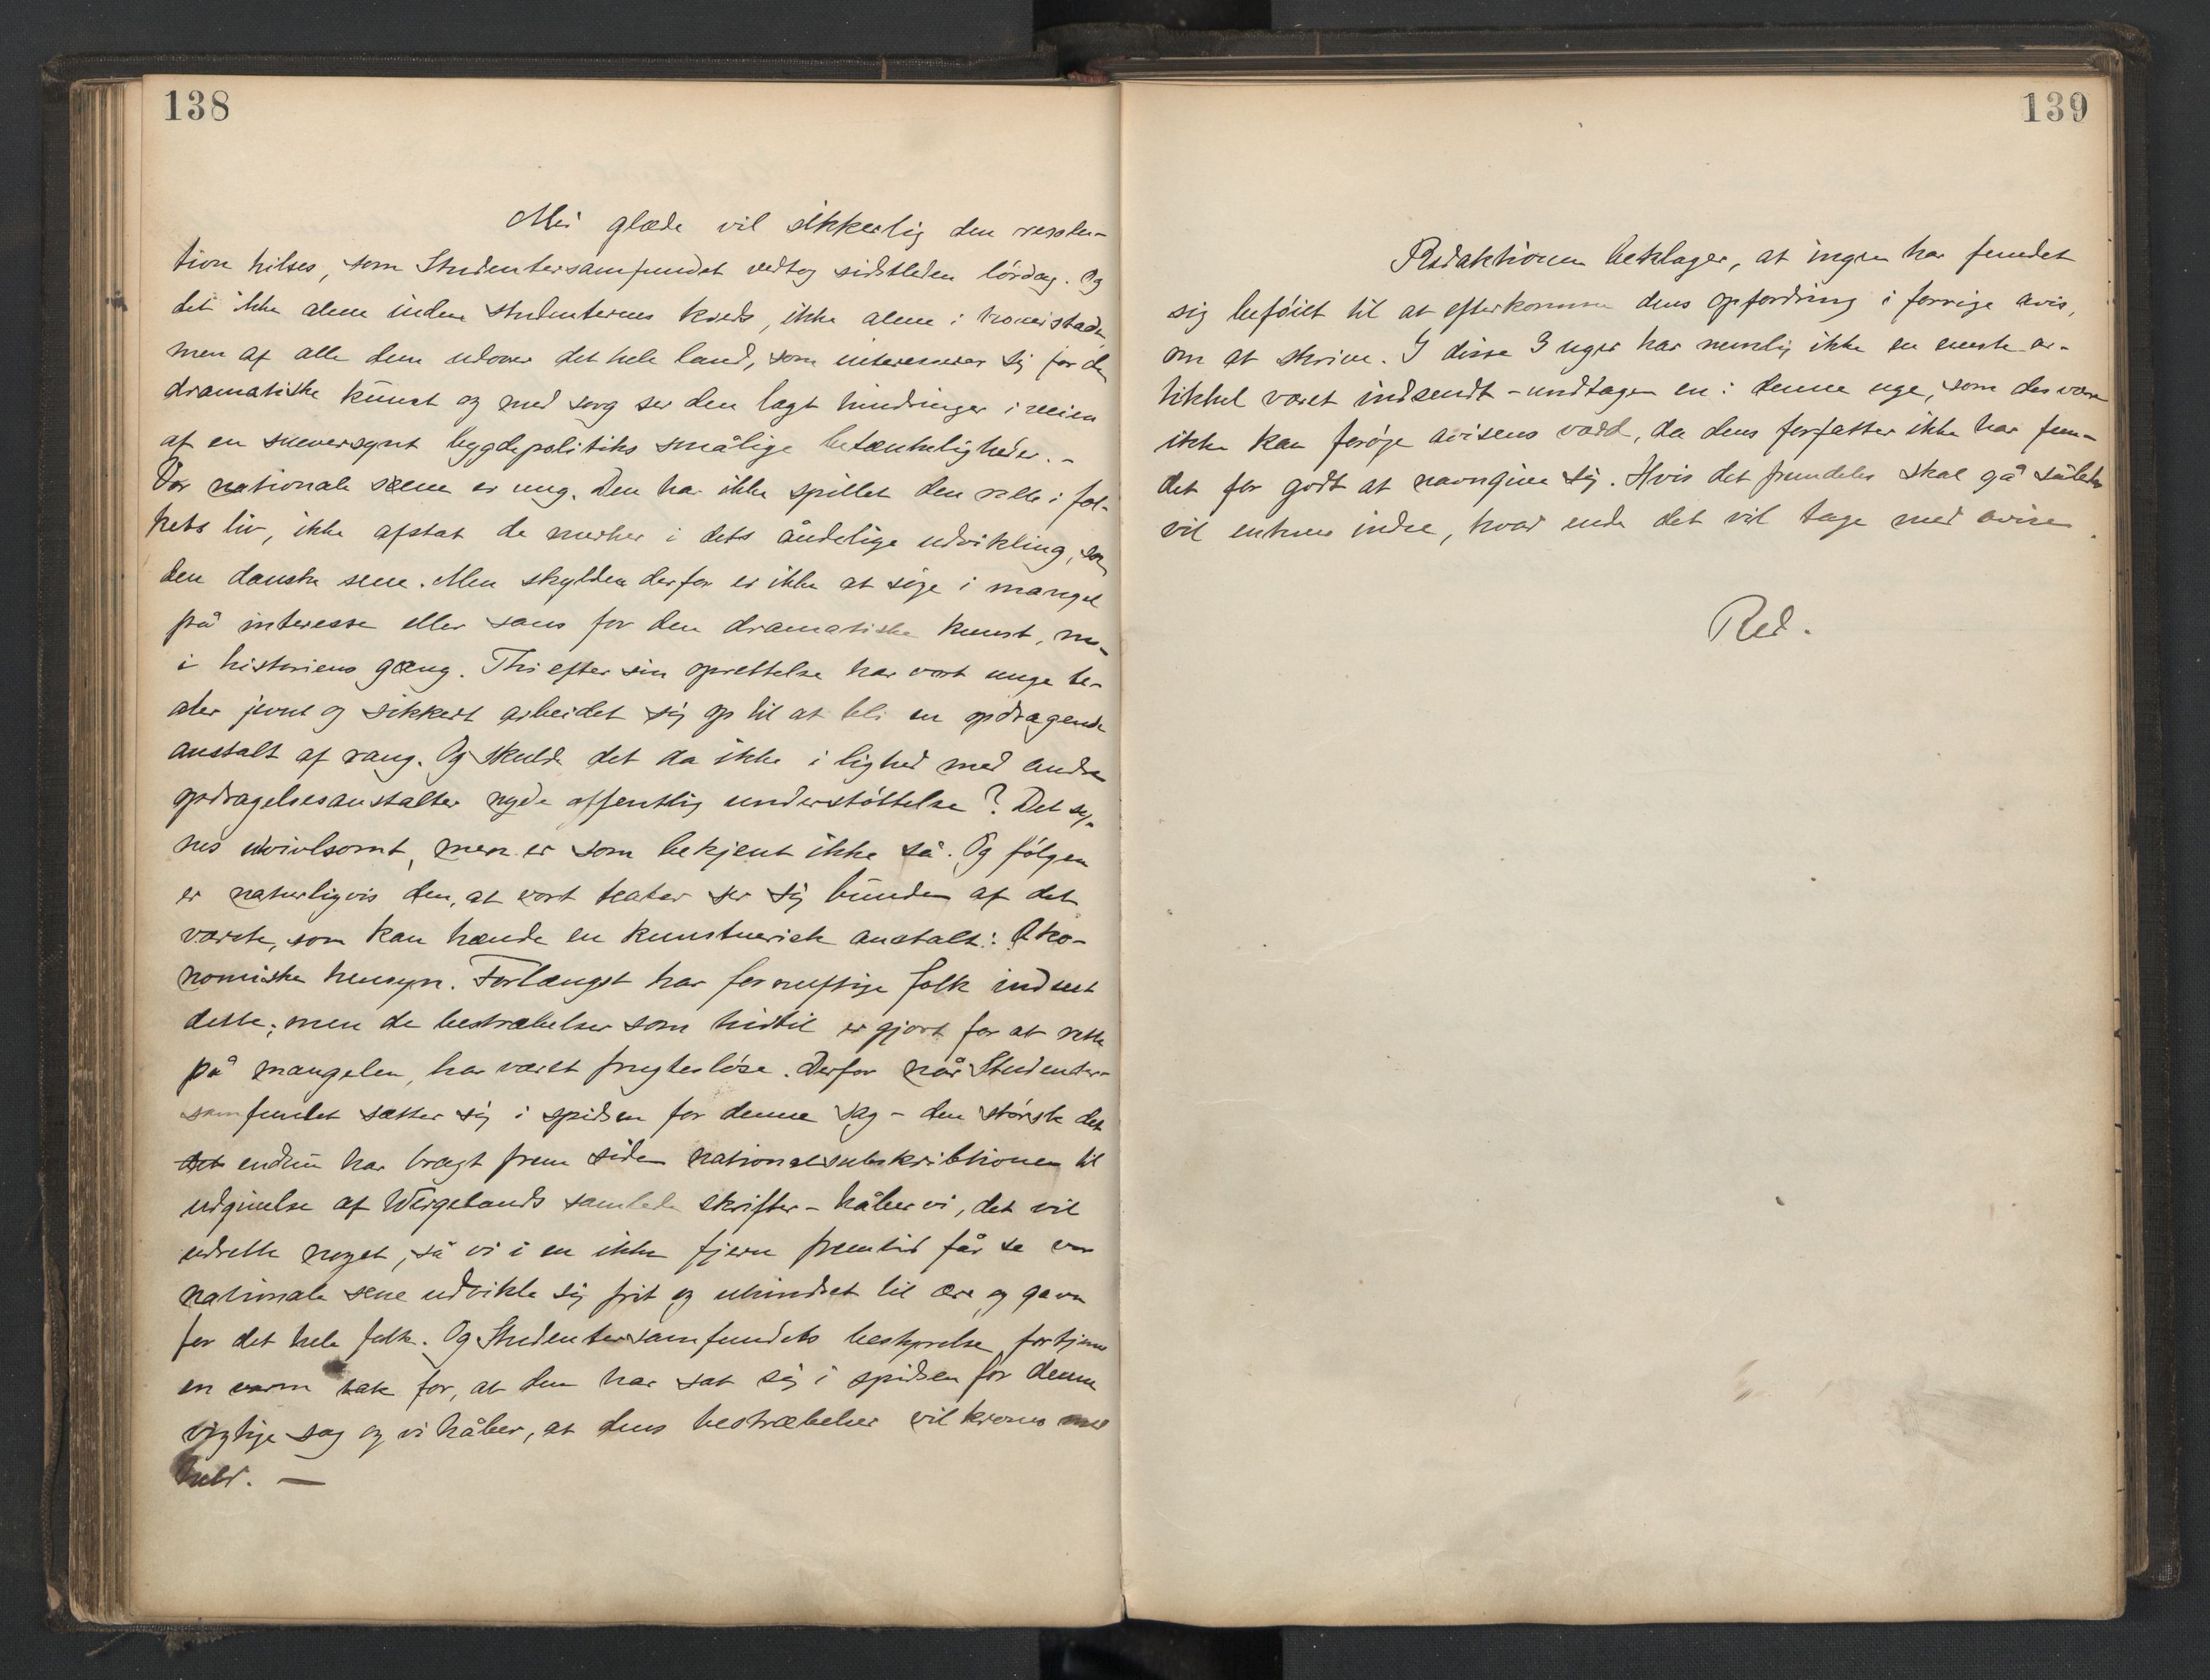 138
Med glæde vil sikkerlig den resolu-
tion hilses, som Studentersamfundet vedtog sidstleden lördag. Og
det ikke alene inden studenternes kreds, ikke alene i hovedstaden,
men af alle dem udover det hele land, som interesserer sig for den
dramatiske kunst og med sorg ser den lagt hindringer i veien
af en sneversynt bygdepolitiks smålige betænkeligheder. -
Vor nationale scene er ung. Den har ikke spillet den rolle i fol-
kets liv, ikke afsat de merker i dets åndelige udvikling, som
den danske scene. Men skylden derfor er ikke at söge i mangel
på interesse eller sans for den dramatiske kunst, men
i historiens gang. Thi efter sin oprettelse har vort unge te-
ater jevnt og sikkert arbeidet sig op til at bli en opdragende
anstalt af rang. Og skulde det da ikke i lighed med andre
opdragelsesanstalter nyde offentlig understöttelse? Det sy-
nes utvivlsomt, men er som bekjent ikke så. Og fölgen
er naturligvis den, at vort teater ser sig bunden af det
værste, som kan hænde en kunstnerisk anstalt: Öko-
nomiske hensyn. Forlængst har fornuftige folk indseet
dette; men de bestræbelser som hidtil er gjort for at rette
på mangelen, har været frugteslöse. Derfor når Studenter-
samfundet sætter sig i spidsen for denne sag - den störste det
det endnu har bragt frem siden nationalsubskribtionen til
udgivelse af Wergelands samlede skrifter - håber vi, det vil
udrette noget, så vi i en ikke fjern fremtid får se vor
nationale scene udvikle sig frit og uhindret til ære og gavn
for det hele folk. Og Studentersamfundets bestyrelse fortjener
en varm tak for, at den har sat sig i spidsen for denne
vigtige sag og vi håber, at dens bestræbelser vil krones med
held. —
139
Redaktionen beklager, at ingen har fundet
sig beföiet til at efterkomme dens opfordring i forrige avis,
om at skrive. I disse 3 uger har nemlig ikke en eneste ar-
tikkel været indsendt - undtagen en i denne uge, som desværre
ikke kan foröge avisens værd, da dens forfatter ikke har fun-
det for godt at navngive sig. Hvis det fremdeles skal gå således
vil enhver indse, hvad ende det vil tage med avisen.
Red.